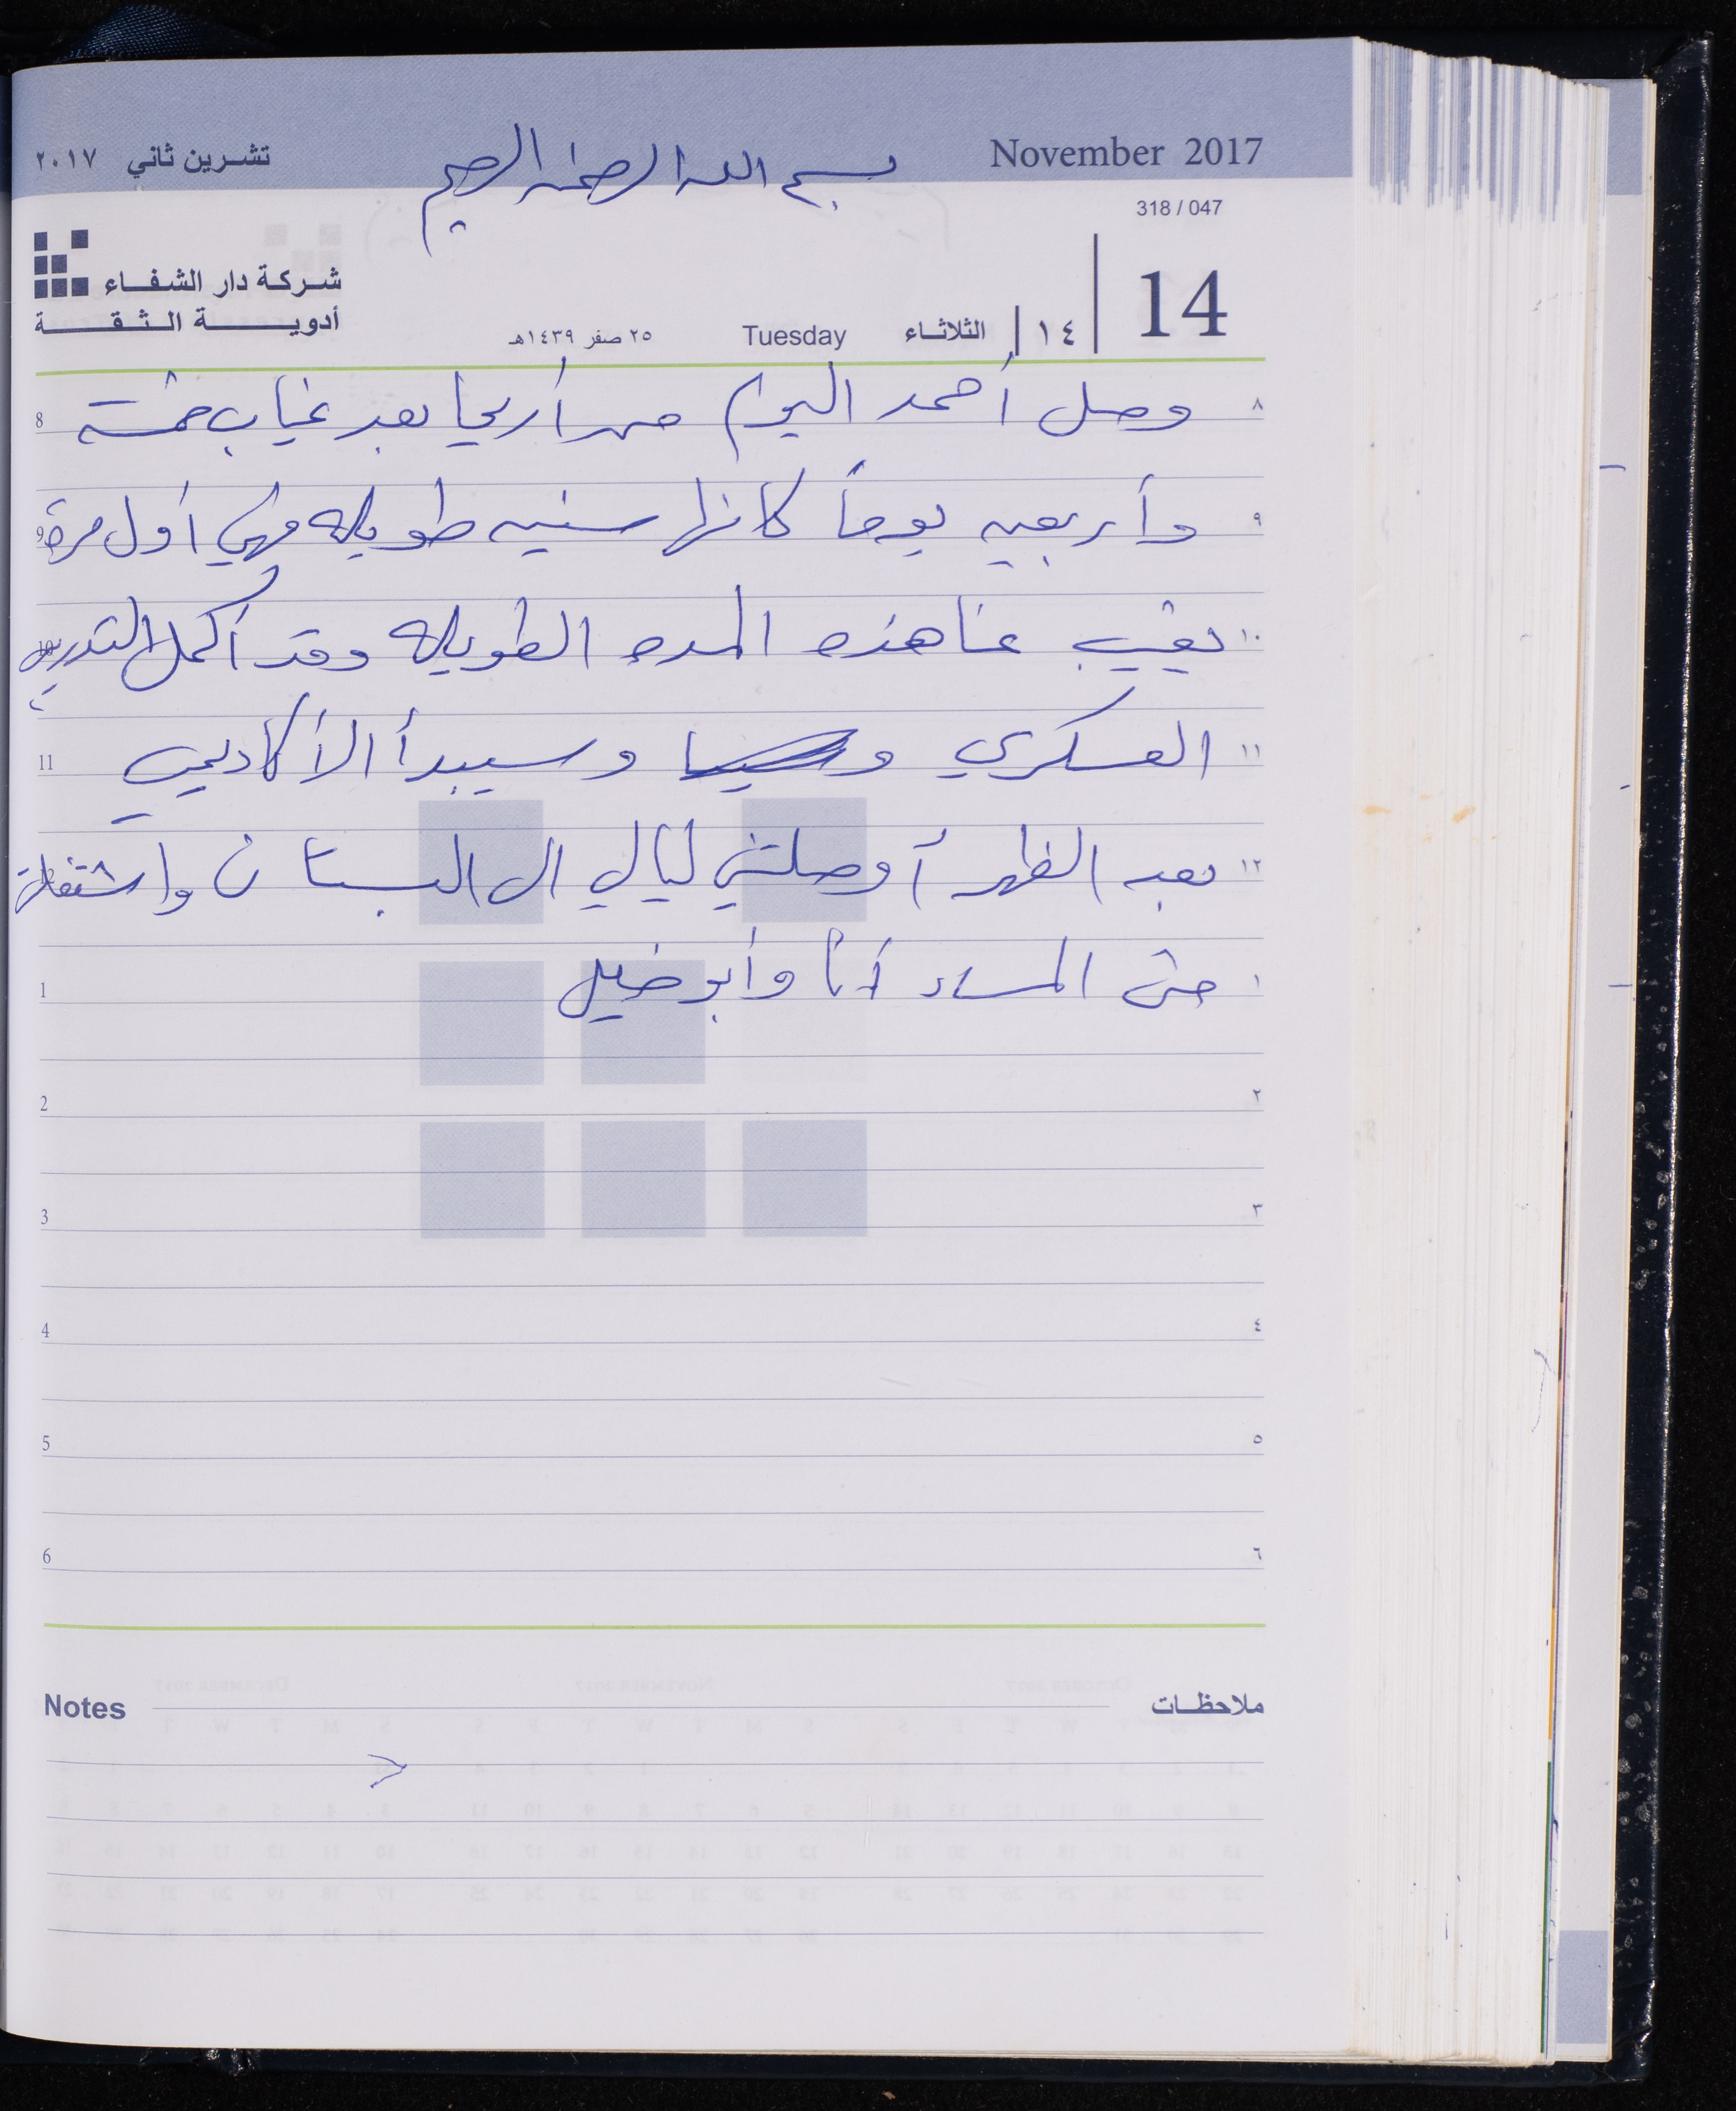 November 2017
تشرين ثاني ٢٠١٧
بسم الله الرحمن الرحيم
318 / 047
شركة دار الشفاء
أدوية الثقة
14 ١٤ الثلاثاء Tuesday ٢٥ صفر ١٤٣٩هـ
٨ وصل أحمد اليوم من أريحا بعد غياب خمسة 8
٩ وأربعين يوماً كانها سنين طويله فهي أول مرة 9
١٠ يغيب عنا هذه المده الطويله وقد أكمل التدريب 10
١١ العسكري و وسيبدأ الأكاديمي 11
١٢ بعد الظهر أوصلتني ليالي الى البستان واشتغلت
١ حتى المساء أنا وأبو خليل 1
٢ 2
٣ 3
٤ 4
٥ 5
٦ 6
ملاحظات Notes